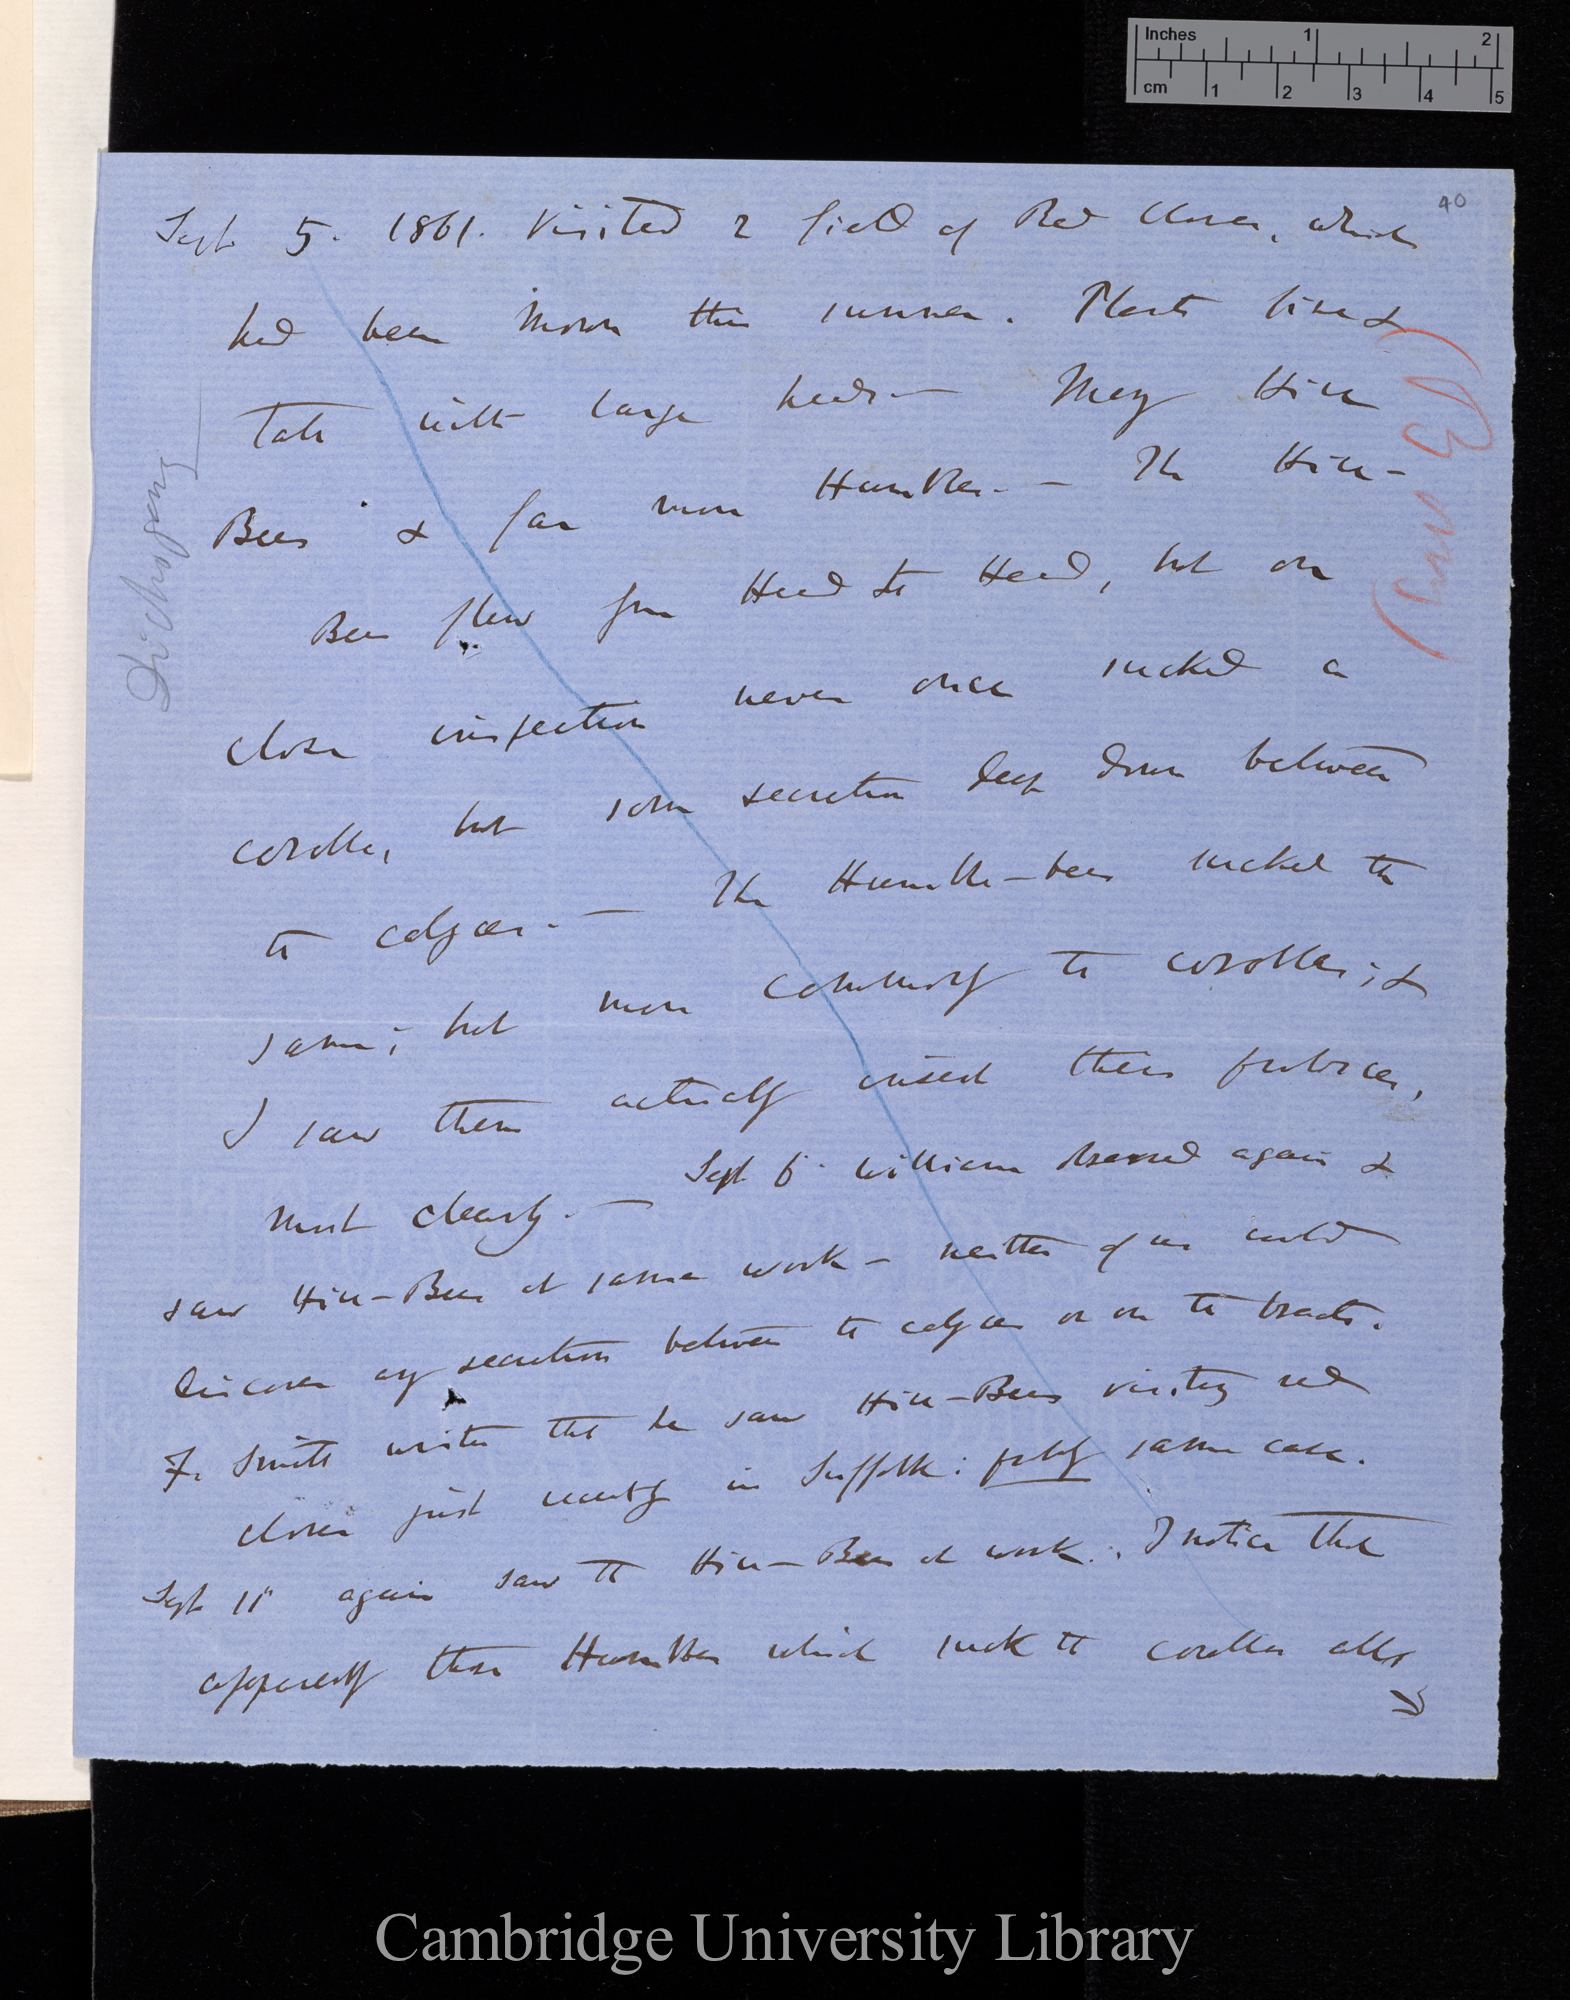 Inches 1 2
cm 1 2 3 4 5
40
Sept 5. 1861. Visited 2 field of Red Clover, which
had been mown this summer. Plants fine &
tall with large heads — Many Hive
Bees & far more Humbles. — The Hive-
Bees flew from Head to Head, but on
close inspection never once sucked a
corolla, but some secretion deep down between
the calyces. — The Humble-bees sucked the
same; but more commonly the corollas; &
I saw them actually insert their proboscis,
most clearly. — Sept 6. William observed again &
saw Hive-Bees at same work — neither of us could
discover any secretion between the calyces or on the bracts.
F. Smith writes that he saw Hive-Bees visiting red
clover just recently in Suffolk: probly same case.
Sept 11" again saw the Hive-Bees at work. I notice that
apparently those Humbles which suck the corollas alls
Dichogamy
(Bees)
Cambridge University Library